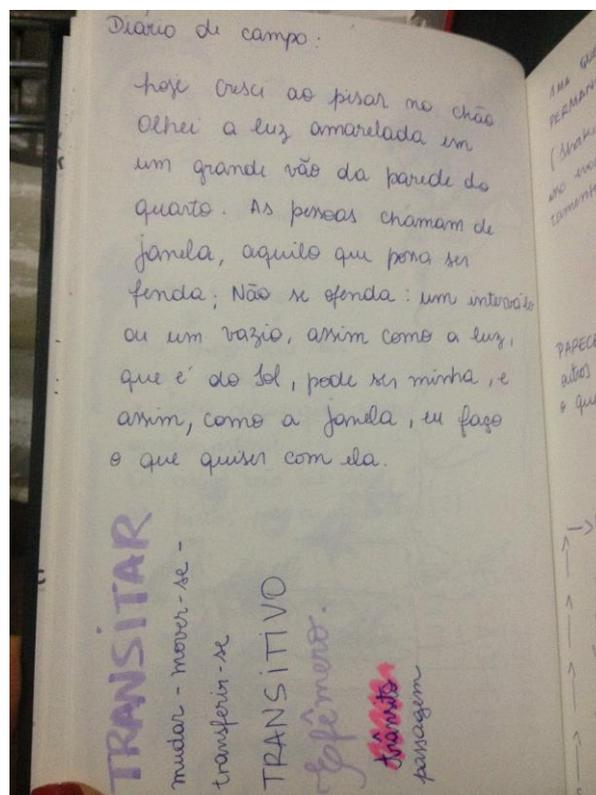 Diário de campo:
hoje cresci ao pisar no chão
olhei a luz amarelada em
um grande vão da parede do
quarto. As pessoas chamam de
janela, aquilo que possa ser
fenda; Não se ofenda: um intervalo
ou um vazio, assim como a luz,
que é do Sol, pode ser minha, e
assim, como a janela, eu faço
o que quiser com ela.
TRANSITAR
mudar - mover-se -
transferir-se
TRANSITIVO
Efêmero.
trânsito
passagem
UMA
PERMAN
PARECE
outros
o que